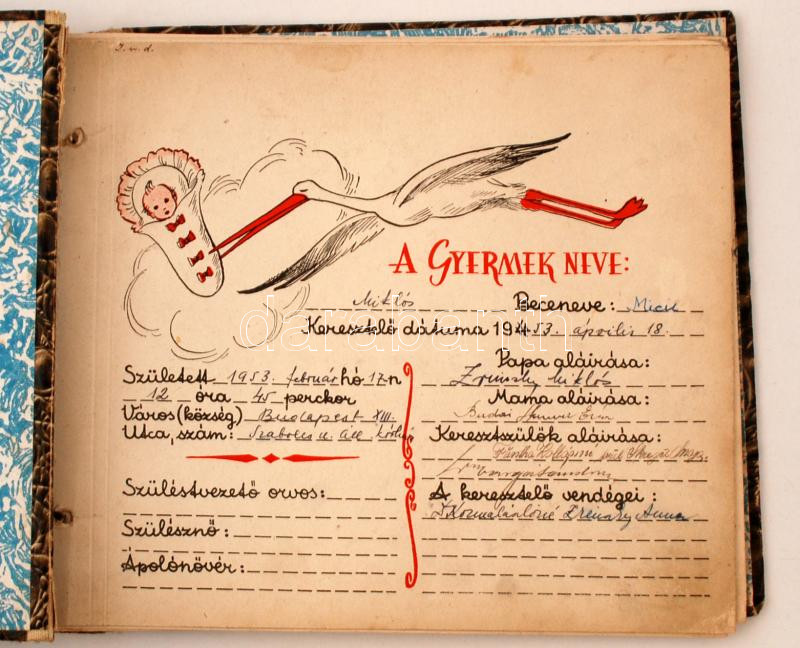 I. v. d.
A GYERMEK NEVE:
Miklós Beceneve:
Keresztelő dátuma 1953. április 18.
Született 1953. február hó 17-n
12 óra 45 perckor
Város (község) Budapest XIII.
Utca, szám: Szabolcs u. áll.
Szüléstvezető orvos:
Szülésznő:
Ápolónővér:
Papa aláírása:
Miklós
Mama aláírása:
Keresztszülők aláírása:
A keresztelő vendégei:
Anna
darabanth